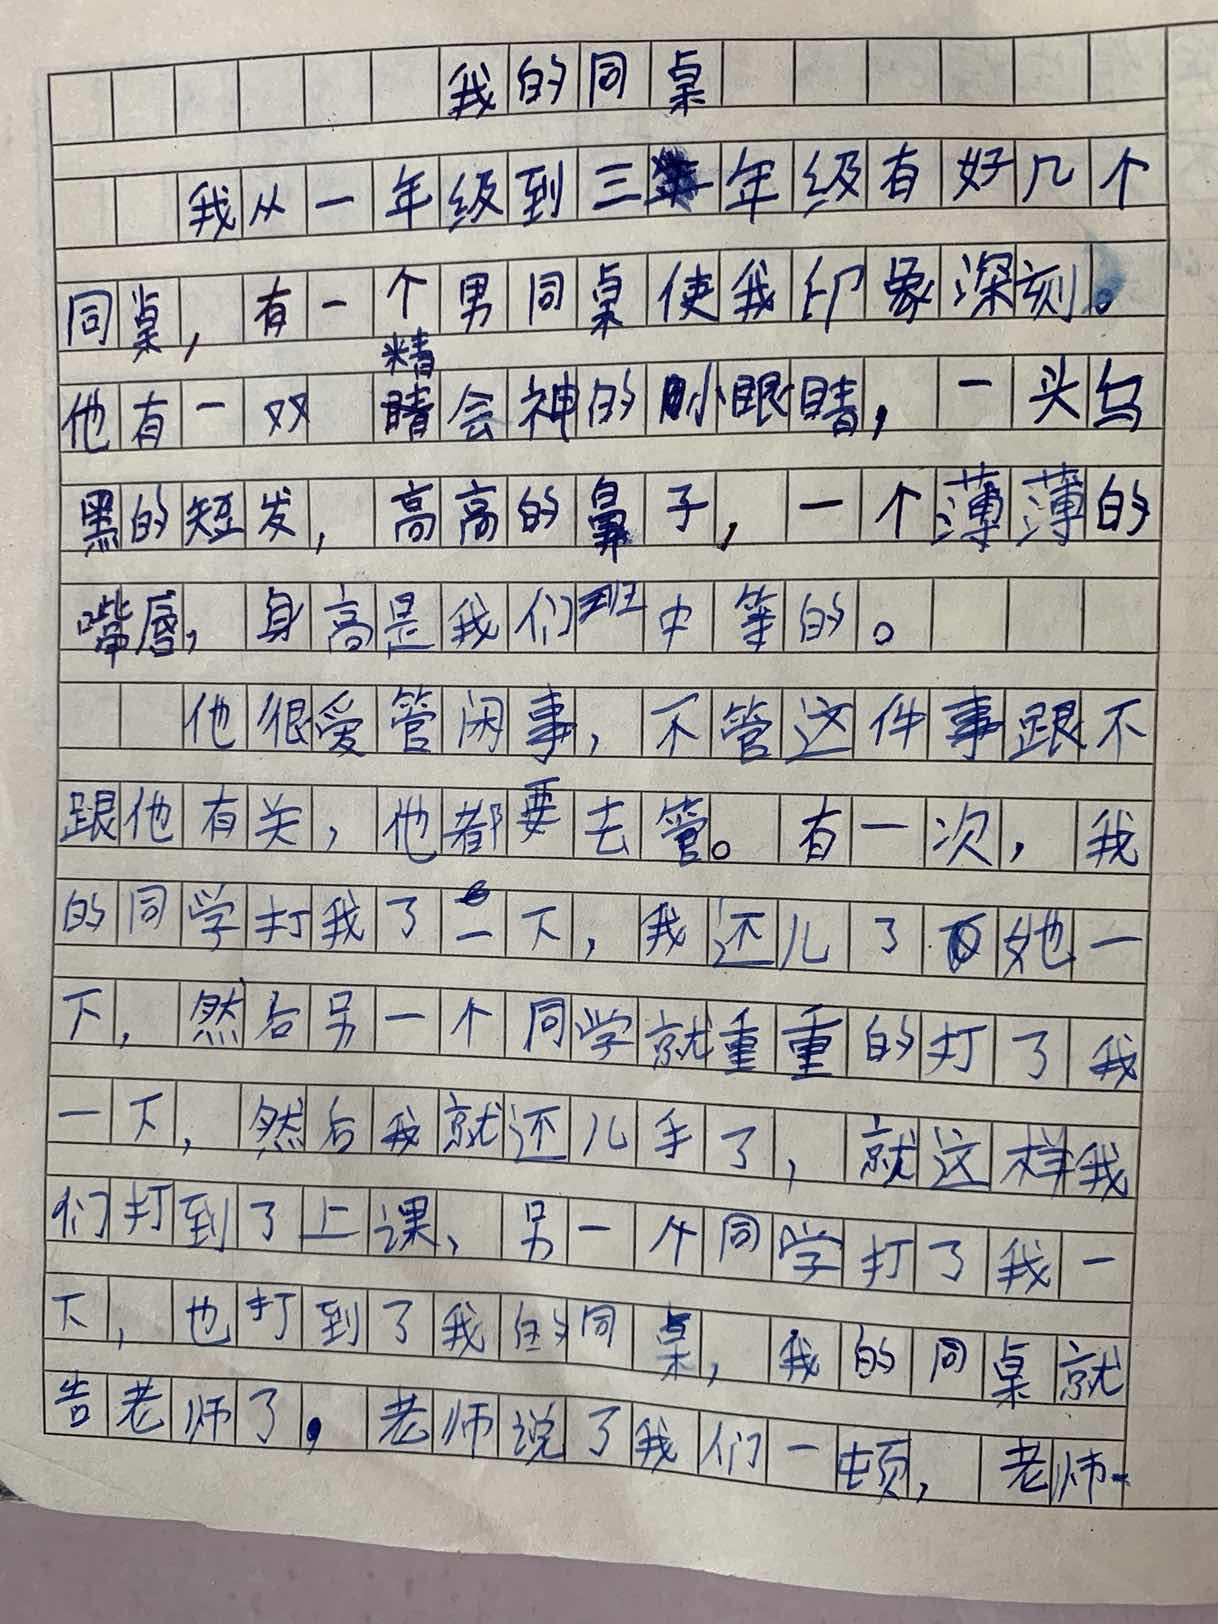 我的同桌
我从一年级到三年级有好几个
同桌，有一个男同桌使我印象深刻。
他有一双精睛会神的小眼睛，一头乌
黑的短发，高高的鼻子，一个薄薄的
嘴唇，身高是我们班中等的。
他很爱管闲事，不管这件事跟不
跟他有关，他都要去管。有一次，我
的同学打我了一下，我还儿了她一
下，然后另一个同学就重重的打了我
一下，然后我就还儿手了，就这样我
们打到了上课、另一个同学打了我一
下，也打到了我的同桌，我的同桌就
告老师了。老师说了我们一顿，老师